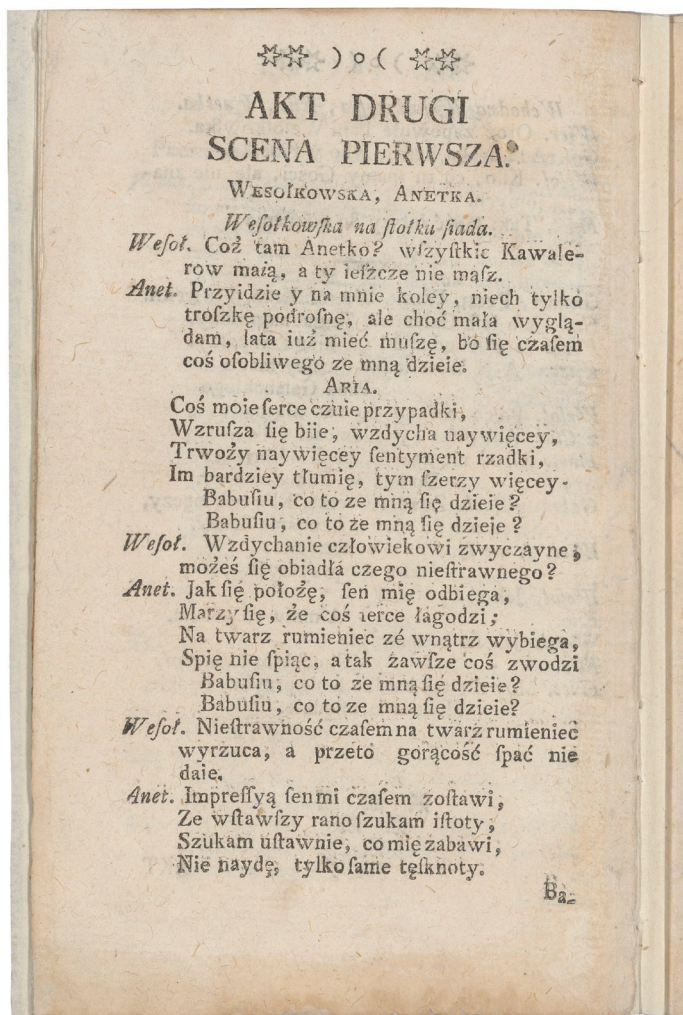 ✲✲ ) o ( ✲✲
AKT DRUGI
SCENA PIERWSZA.
WESOŁKOWSKA, ANETKA.
Weſołkowſka na ſtołku ſiada.
Weſoł. Coż tam Anetko? wſzyſtkie Kawale-
row maią, a ty ieſzcze nie mąſz.
Anet. Przyidzie y na mnie koley, niech tylko
troſzkę podroſnę, ale choć mała wyglą-
dam, lata iuż mieć muſzę, bo się czaſem
coś oſobliwego ze mną dzieie.
ARIA.
Coś moie ſerce czuie przypadki,
Wzruſza ſię biie, wzdycha naywięcey,
Trwoży naywięcey ſentyment rzadki,
Im bardziey tłumię, tym ſzerzy więcey-
Babuſiu, co to ze mną ſię dzieie?
Babuſiu, co to że mną ſię dzieje?
Weſoł. Wzdychanie człowiekowi zwyczayne,
możeś ſię obiadłá czego nieſtrawnego?
Anet. Jak ſię położę, ſen mię odbiega,
Marzy ſię, że coś ſerce łagodzi;
Na twarz rumieniec zé wnątrz wybiega,
Spię nie ſpiąc, a tak zawſze coś zwodzi
Babuſiu, co to ze mną ſię dzieie?
Babuſiu, co to ze mną ſię dzieie?
Weſoł. Nieſtrawność czaſem na twarz rumieniec
wyrzuca, a przeto gorącość ſpać nie
daie.
Anet. Impreſſyą ſen mi czaſem zoſtawi,
Ze wſtawſzy rano ſzukam iſtoty,
Szukam uſtawnie, co mię zabawi,
Nie naydę, tylko ſame tęſknoty.
Ba-